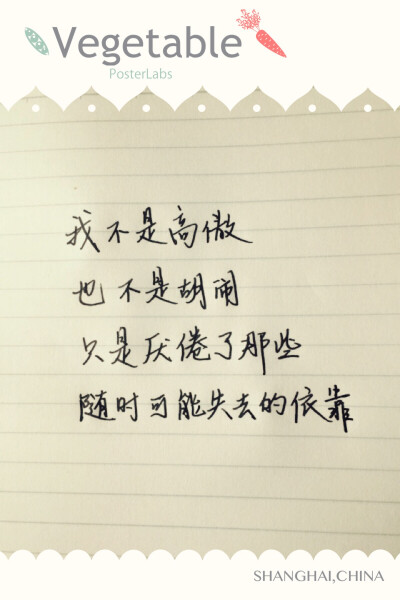 Vegetable
PosterLabs
我不是高傲
也不是胡闹
只是厌倦了那些
随时可能失去的依靠
SHANGHAI,CHINA